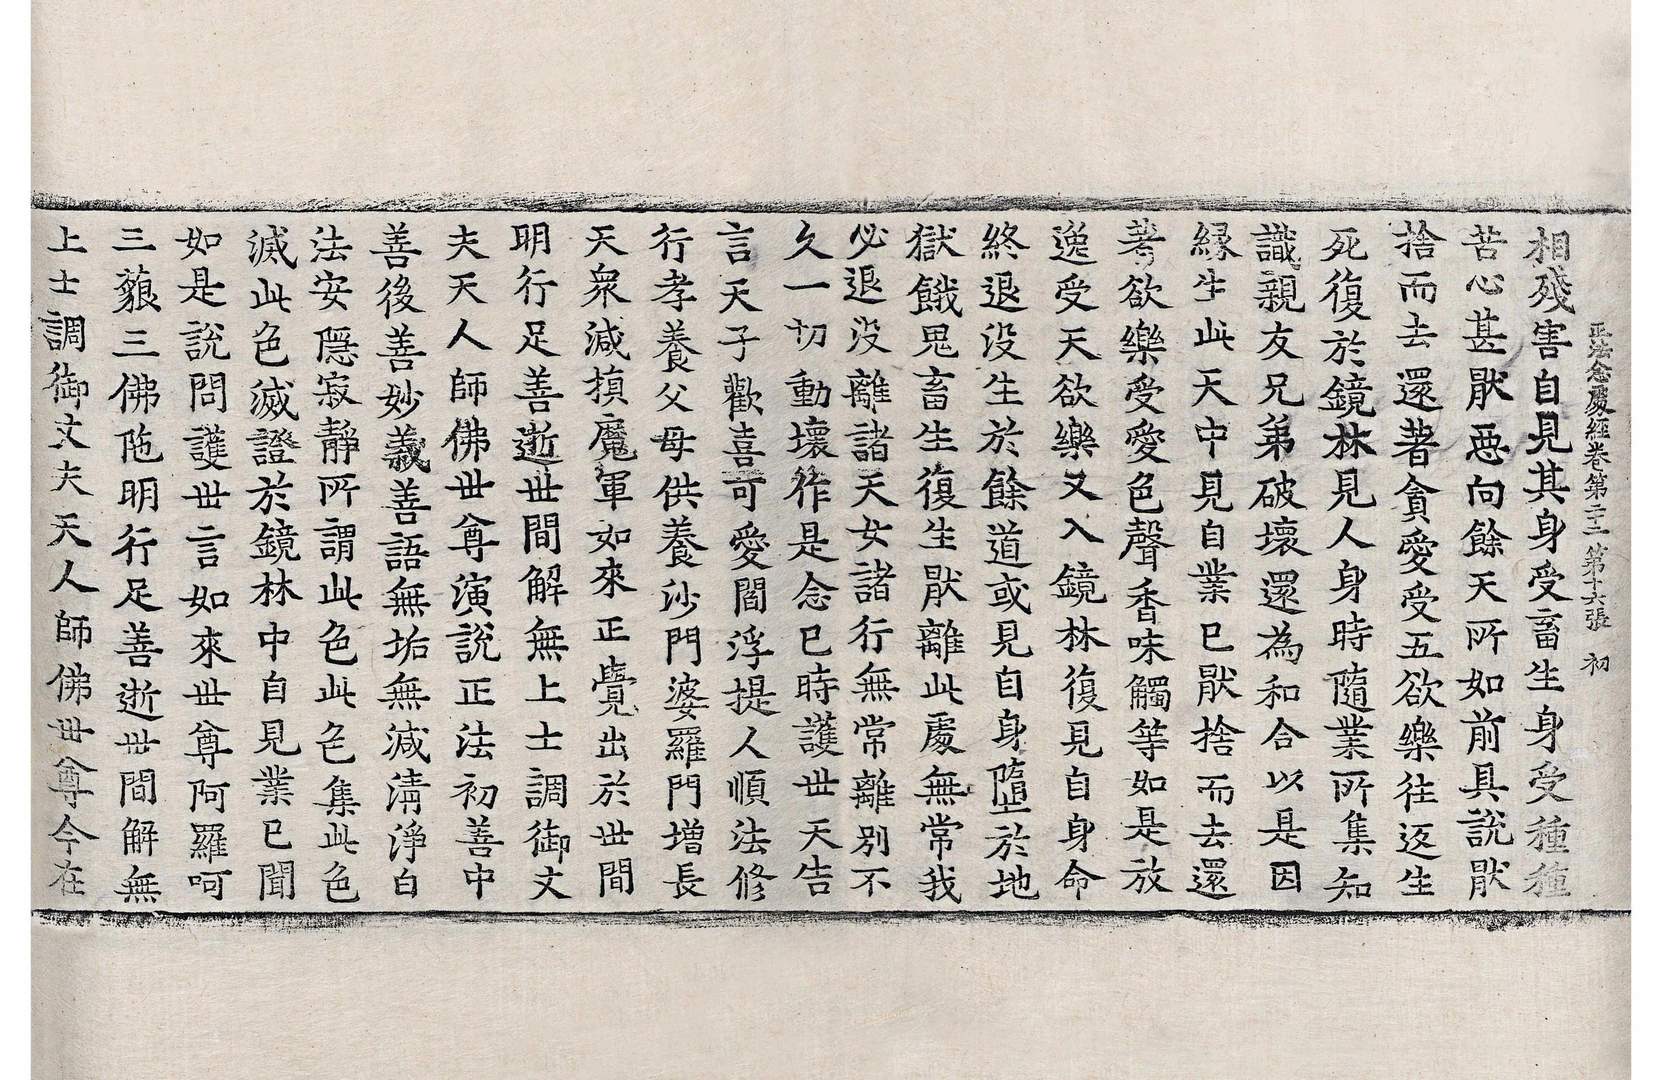 正法念處經卷第二十二 第十六張 初
相殘害自見其身受畜生身受種種
苦心甚猒惡向餘天所如前具說猒
捨而去還著貪愛受五欲樂往返生
死復於鏡林見人身時隨業所集知
識親友兄弟破壞還為和合以是因
縁生此天中見自業已猒捨而去還
著欲樂受愛色聲香味觸等如是放
逸受天欲樂又入鏡林復見自身命
終退没生於餘道或見自身墮於地
獄餓鬼畜生復生猒離此處無常我
必退没離諸天女諸行無常離別不
久一切動壞作是念已時護世天告
言天子歡喜可愛閻浮提人順法修
行孝養父母供養沙門婆羅門增長
天衆減損魔軍如來正覺出於世間
明行足善逝世間解無上士調御丈
夫天人師佛世尊演說正法初善中
善後善善妙義善語無垢無減清淨白
法安隱寂靜所謂此色此色集此色
滅此色滅證於鏡林中自見業已聞
如是說問護世言如來世尊阿羅呵
三藐三佛陁明行足善逝世間解無
上士調御丈夫天人師佛世尊今在